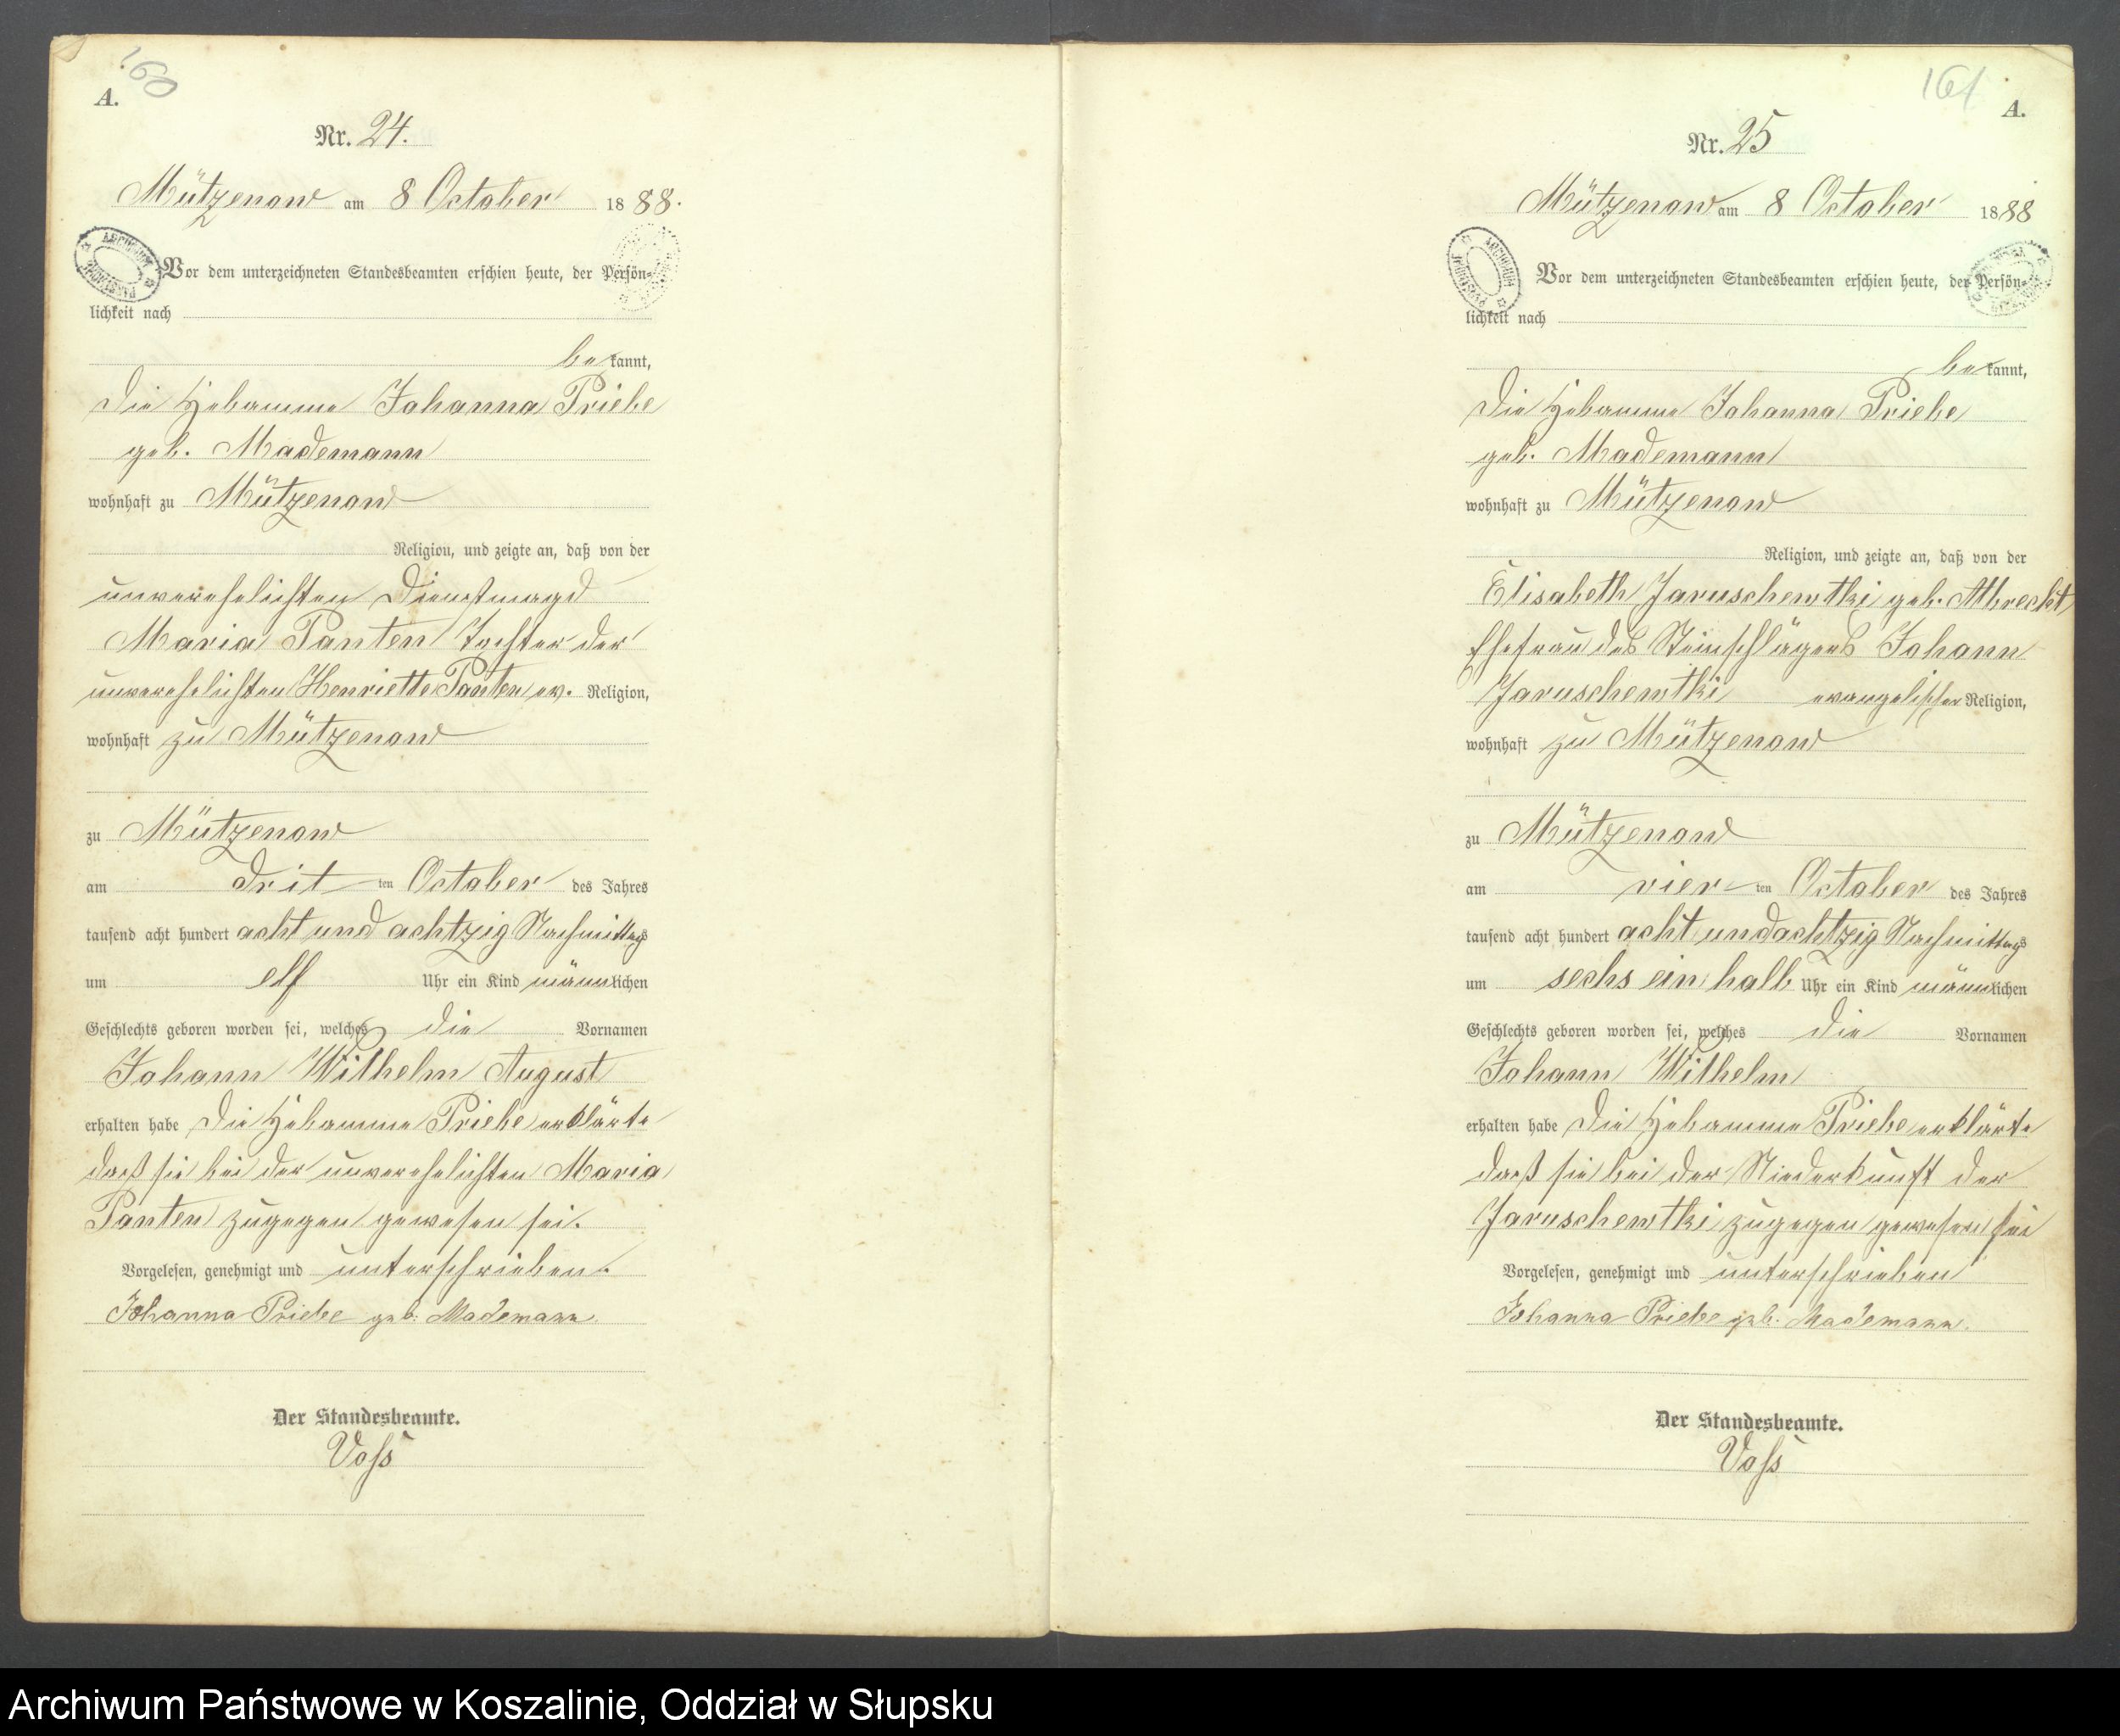 160
A.
Nr. 24.
Mützenow am 8 October 1888.
Vor dem unterzeichneten Standesbeamten erschien heute, der Persön-
lichkeit nach
bekannt,
die Hebamme Johanna Priebe
geb. Mademann
wohnhaft zu Mützenow
Religion, und zeigte an, daß von der
unverehelichten Dienstmagd
Maria Panten Tochter der
unverehelichten Henriette Panten ev. Religion,
wohnhaft zu Mützenow
zu Mützenow
am drit ten October des Jahres
tausend acht hundert acht und achtzig Nachmittags
um elf Uhr ein Kind männlichen
Geschlechts geboren worden sei, welches die Vornamen
Johann Wilhelm August
erhalten habe die Hebamme Priebe erklärte
daß sie bei der unverehelichten Maria
Panten zugegen gewesen sei.
Vorgelesen, genehmigt und unterschrieben.
Johanna Priebe geb. Mademann.
Der Standesbeamte.
Voss
161
A.
Nr. 25
Mützenow am 8 October 1888
ARCHIWUM
Vor dem unterzeichneten Standesbeamten erschien heute, der Persön-
lichkeit nach
bekannt,
die Hebamme Johanna Priebe
geb. Mademann
wohnhaft zu Mützenow
Religion, und zeigte an, daß von der
Elisabeth Jaruschewtki geb. Albrecht
Ehefrau des Steinschlägers Johann
Jaruschewtki evangelischer Religion,
wohnhaft zu Mützenow
zu Mützenow
am vier ten October des Jahres
tausend acht hundert acht und achtzig Nachmittags
um sechs ein halb Uhr ein Kind männlichen
Geschlechts geboren worden sei, welches die Vornamen
Johann Wilhelm
erhalten habe die Hebamme Priebe erklärte
daß sie bei der Niederkunft der
Jaruschewtki zugegen gewesen sei
Vorgelesen, genehmigt und unterschrieben
Johanna Priebe geb. Mademann.
Der Standesbeamte.
Voss
Archiwum Państwowe w Koszalinie, Oddział w Słupsku